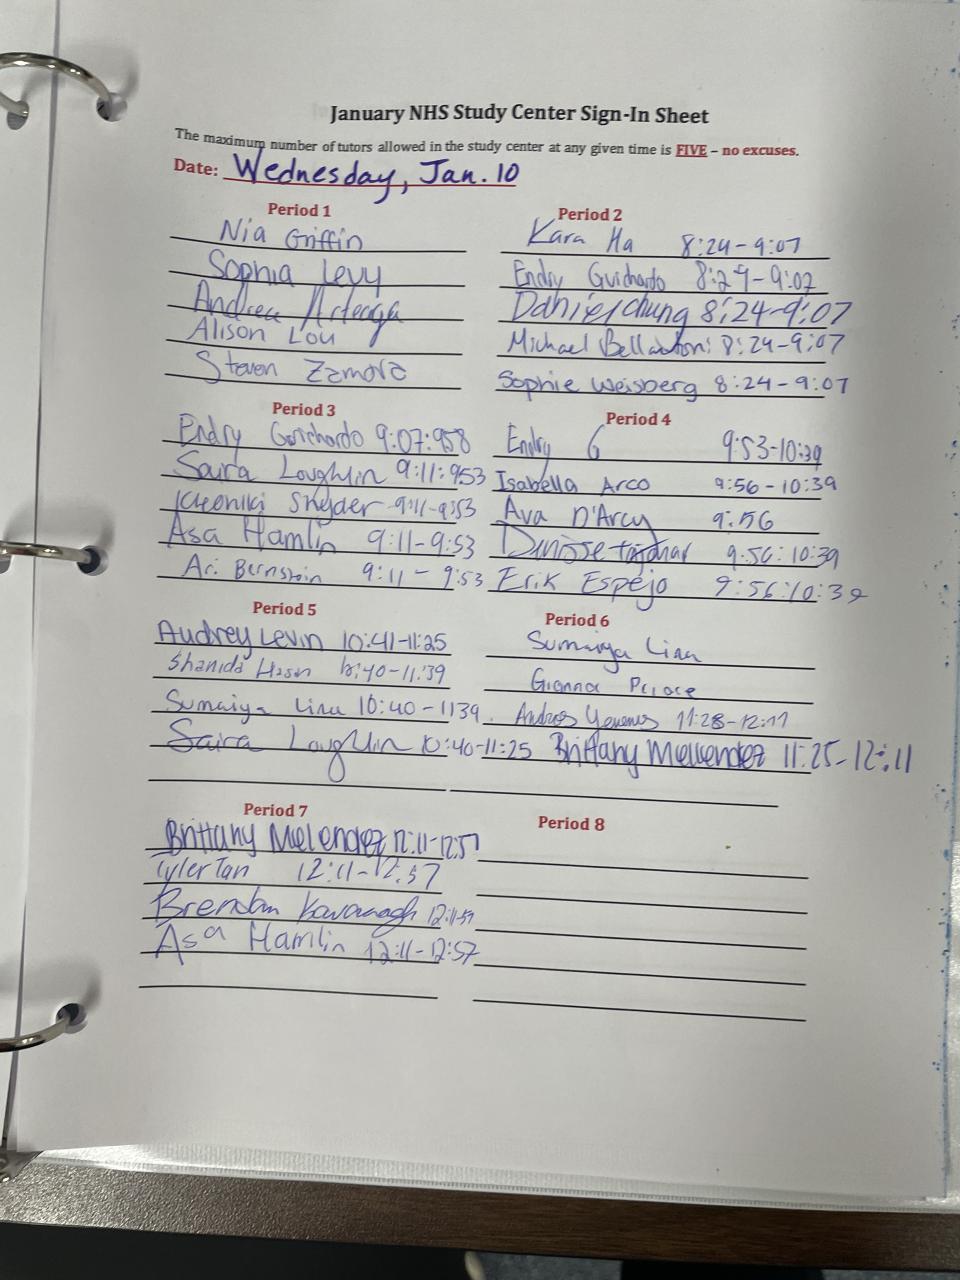 January NHS Study Center Sign-In Sheet
The maximum number of tutors allowed in the study center at any given time is FIVE – no excuses.
Date: Wednesday, Jan. 10
Period 1
Nia Griffin
Sophia Levy
Andrea Arteaga
Alison Lou
Steven Zamora
Period 2
Kara Ha 8:24-9:07
Endry Guichardo 8:29-9:07
Daniel Chung 8:24-9:07
Michael 8:24-9:07
Sophie Weisberg 8:24-9:07
Period 3
Endry Guichardo 9:07:958
Saira Loughlin 9:11:953
Snyder 9:11-9:53
Asa Hamlin 9:11-9:53
Ari Bernstein 9:11-9:53
Period 4
Endry G 9:53-10:39
Isabella Arco 9:56-10:39
Ava D'Arcy 9:56
9:56:10:39
Erik Espejo 9:56:10:39
Period 5
Audrey Levin 10:41-11:25
Shanida
Sumaiya Lina 10:40-1139
Saira Loughlin 10:40-11:25
Period 6
Sumaiya Lina
Gianna
Andres 11:28-12:11
Brittany 11:25-12:11
Period 7
Brittany Melendez 12:11-12:57
Tyler Tan 12:11-12:57
Brendan Kavanagh
Asa Hamlin 12:11-12:57
Period 8